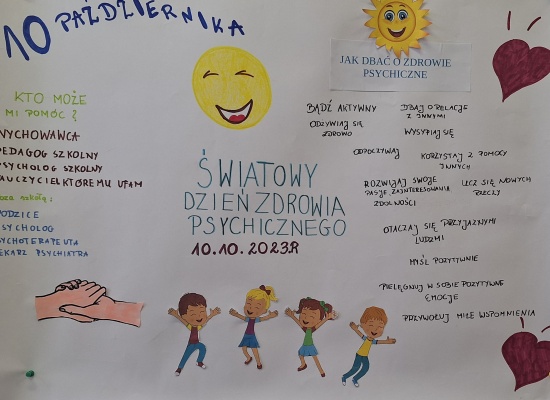 10 PAŹDZIERNIKA
KTO MOŻE
MI POMÓC?
WYCHOWAWCA
PEDAGOG SZKOLNY
PSYCHOLOG SZKOLNY
NAUCZYCIEL KTÓREMU UFAM
poza szkołą:
RODZICE
PSYCHOLOG
PSYCHOTERAPEUTA
LEKARZ PSYCHIATRA
ŚWIATOWY
DZIEŃ ZDROWIA
PSYCHICZNEGO
10.10.2023R
JAK DBAĆ O ZDROWIE
PSYCHICZNE
BĄDŹ AKTYWNY
ODŻYWIAJ SIĘ
ZDROWO
DBAJ O RELACJE
Z INNYMI
WYSYPIAJ SIĘ
ODPOCZYWAJ
KORZYSTAJ Z POMOCY
INNYCH
ROZWIJAJ SWOJE
PASJE, ZAINTERESOWANIA
ZDOLNOŚCI
UCZ SIĘ NOWYCH
RZECZY
OTACZAJ SIĘ PRZYJAZNYMI
LUDŹMI
MYŚL POZYTYWNIE
PIELĘGNUJ W SOBIE POZYTYWNE
EMOCJE
PRZYWOŁUJ MIŁE WSPOMNIENIA